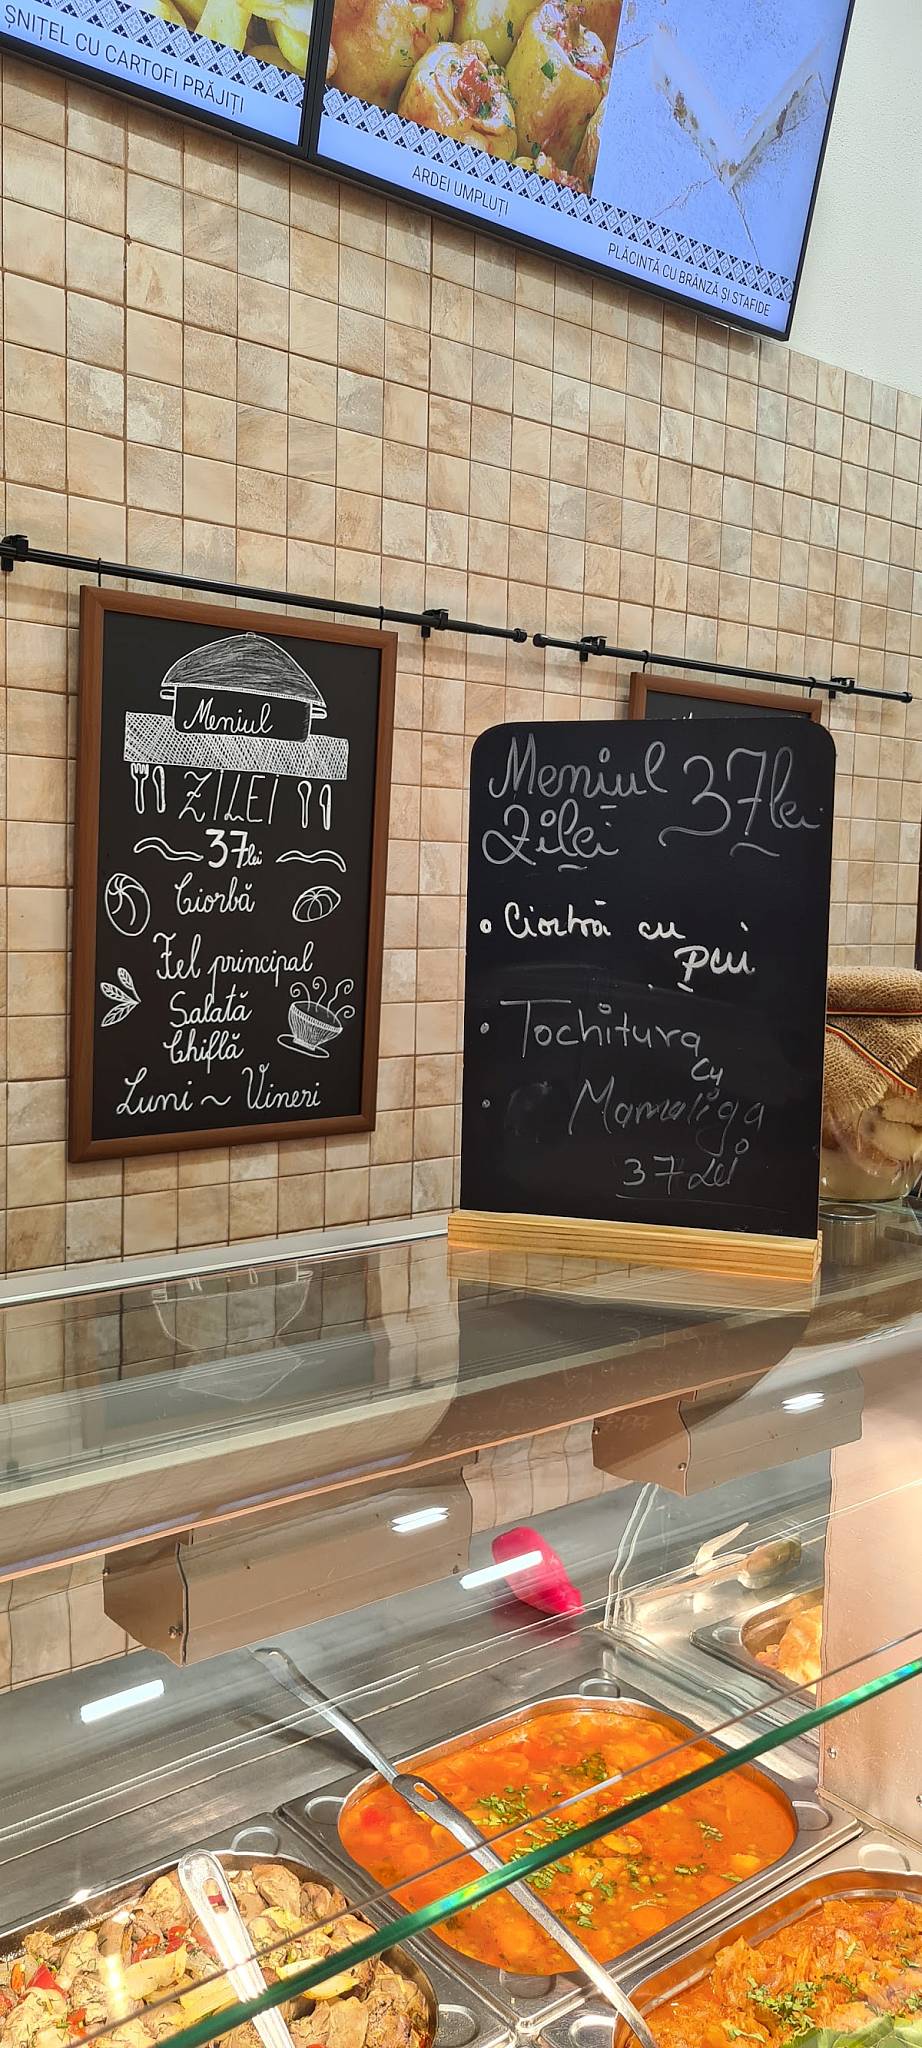 ȘNIȚEL CU CARTOFI PRĂJIȚI
ARDEI UMPLUȚI
PLĂCINTĂ CU BRÂNZĂ ȘI STAFIDE
Meniul
ZILEI
37 lei
Ciorbă
Fel principal
Salată
Chiflă
Luni ~ Vineri
Meniul 37 lei
Zilei
Ciorbă cu
pui
Tochitura
cu
Mamaliga
37 Lei